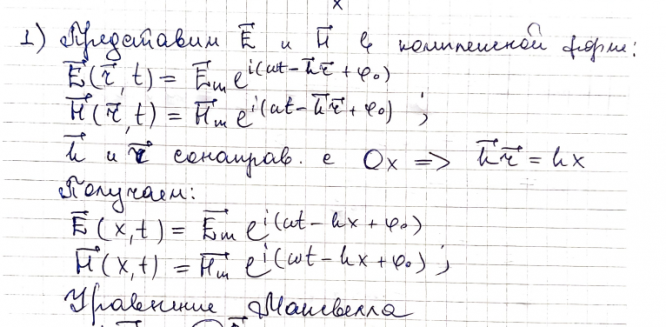 x
1) Представим E⃗ и H⃗ в комплексной форме:
E⃗(r⃗,t) = E⃗ₘ e^{i(ωt - k⃗r⃗ + φ₀)}
H⃗(r⃗,t) = H⃗ₘ e^{i(ωt - k⃗r⃗ + φ₀)};
k⃗ и r⃗ сонаправ. с Ox => k⃗r⃗ = kx
Получаем:
E⃗(x,t) = E⃗ₘ e^{i(ωt - kx + φ₀)}
H⃗(x,t) = H⃗ₘ e^{i(ωt - kx + φ₀)};
Уравнение Максвелла